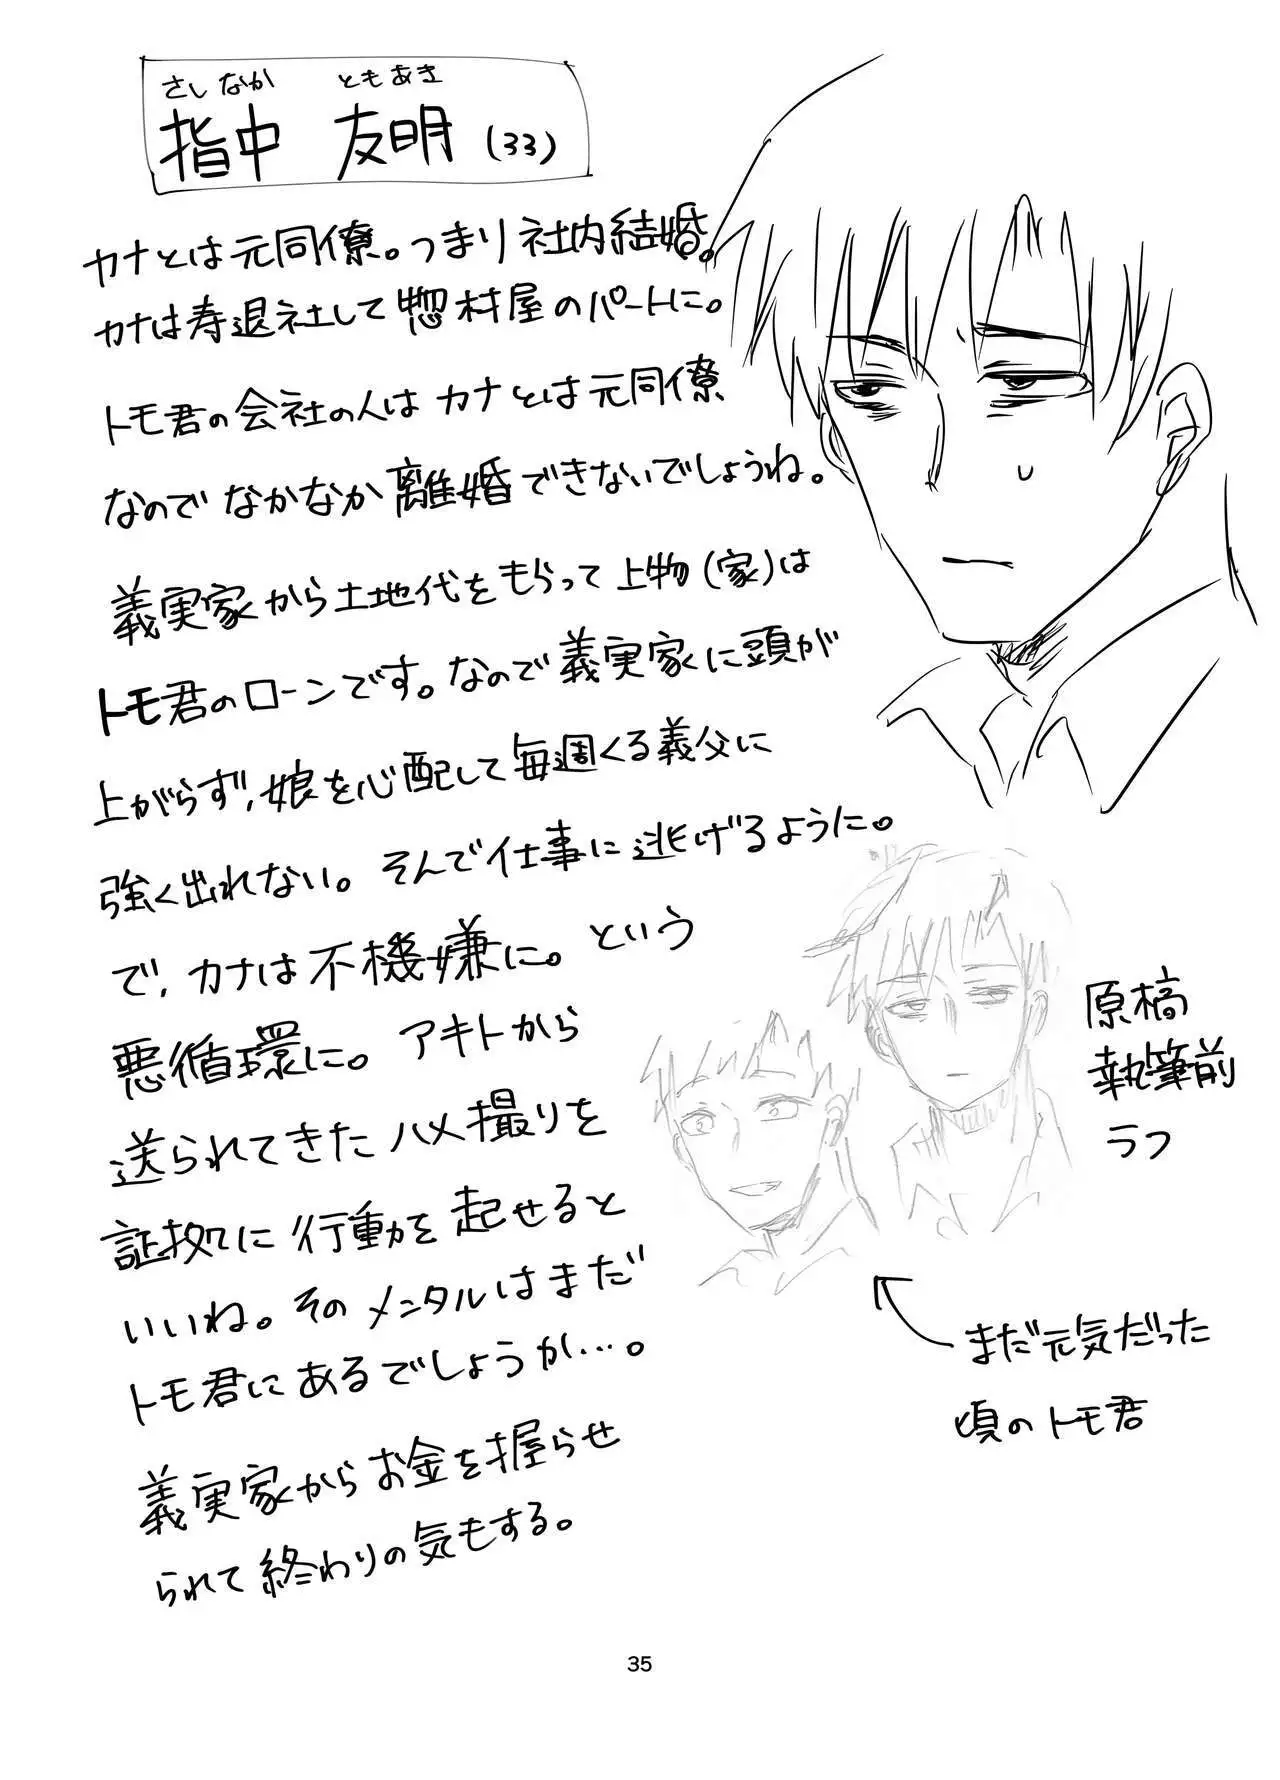 さしなか ともあき
指中 友明 (33)
カナとは元同僚。つまり社内結婚。
カナは寿退社して惣材屋のパートに。
トモ君の会社の人はカナとは元同僚
なのでなかなか離婚できないでしょうね。
義実家から土地代をもらって上物(家)は
トモ君のローンです。なので義実家に頭が
上がらず、娘を心配して毎週くる義父に
強く出れない。そんで仕事に逃げるように。
で、カナは不機嫌に。という
悪循環に。アキトから
送られてきたハメ撮りを
証拠に行動を起せると
いいね。そのメンタルはまだ
トモ君にあるでしょうか…。
義実家からお金を握らせ
られて終わりの気もする。
原稿
執筆前
ラフ
まだ元気だった
頃のトモ君
35